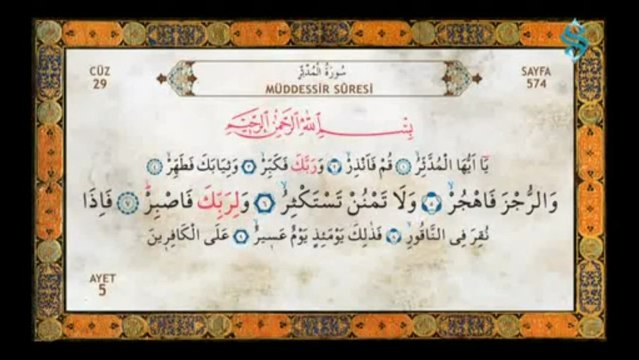 CÜZ
29
سُورَةُ الْمُدَّثِّرِ
MÜDDESSİR SÛRESİ
SAYFA
574
بِسْمِ اللّٰهِ الرَّحْمٰنِ الرَّحِيمِ
يَٓا اَيُّهَا الْمُدَّثِّرُۙ ﴿١﴾ قُمْ فَاَنْذِرْۙ ﴿٢﴾ وَرَبَّكَ فَكَبِّرْۙ ﴿٣﴾ وَثِيَابَكَ فَطَهِّرْۙ ﴿٤﴾
وَالرُّجْزَ فَاهْجُرْۙ ﴿٥﴾ وَلَا تَمْنُنْ تَسْتَكْثِرُۙ ﴿٦﴾ وَلِرَبِّكَ فَاصْبِرْۜ ﴿٧﴾ فَاِذَا
نُقِرَ فِي النَّاقُورِۙ ﴿٨﴾ فَذٰلِكَ يَوْمَئِذٍ يَوْمٌ عَسِيرٌۙ ﴿٩﴾ عَلَى الْكَافِرِينَ
AYET
5